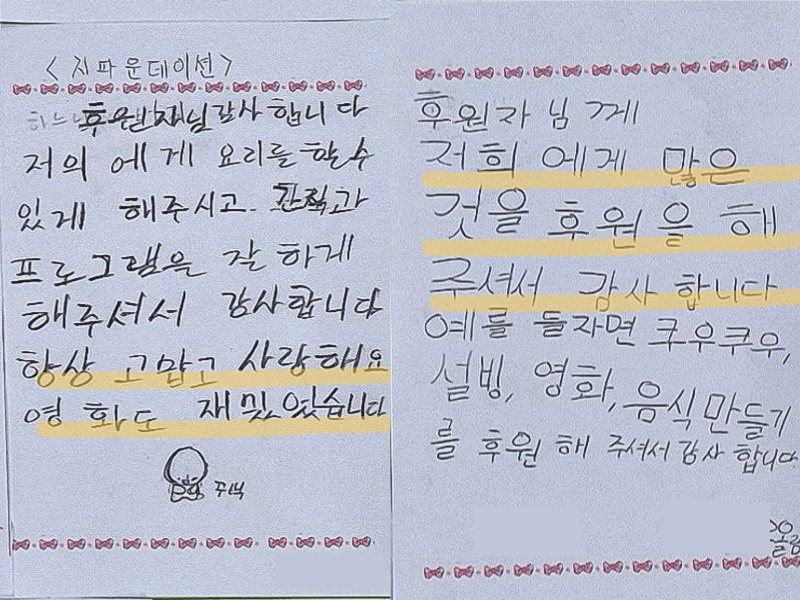 <지파운데이션>
후원자님 감사 합니다
저의 에게 요리를 할수
있게 해주시고 간식과
프로그램을 잘 하게
해주셔서 감사합니다
항상 고맙고 사랑해요
영화도 재밌었습니다
후원자 님 께
저희 에게 많은
것을 후원 을 해
주셔서 감사 합니다
예를 들자면 쿠우쿠우,
설빙, 영화, 음식 만들기
를 후원 해 주셔서 감사 합니다